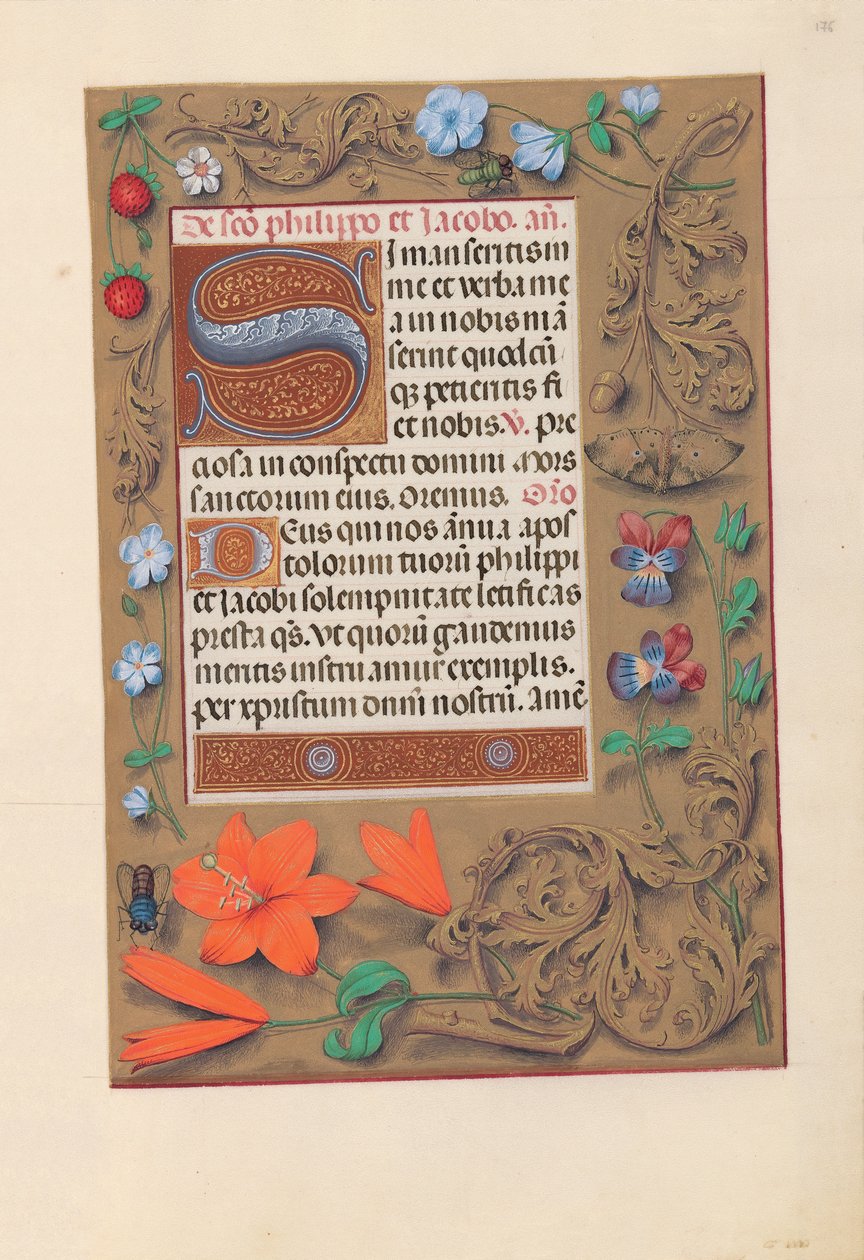 176
De scō philippo et Jacobo. añ.
SI manseritis in
me et verba me
a in nobis mā
serint quodcū
qꝫ petieritis fi
et nobis. V̷. Pre
ciosa in conspectu domini Mors
sanctorum eius. Oremus. Oro
DEus qui nos ānua apos
tolorum tuorū philippi
et Jacobi solempnitate letificas
presta qs̄. vt quorū gaudemus
meritis instruamur exemplis.
per xpristum dnm̄ nostrū. Amē